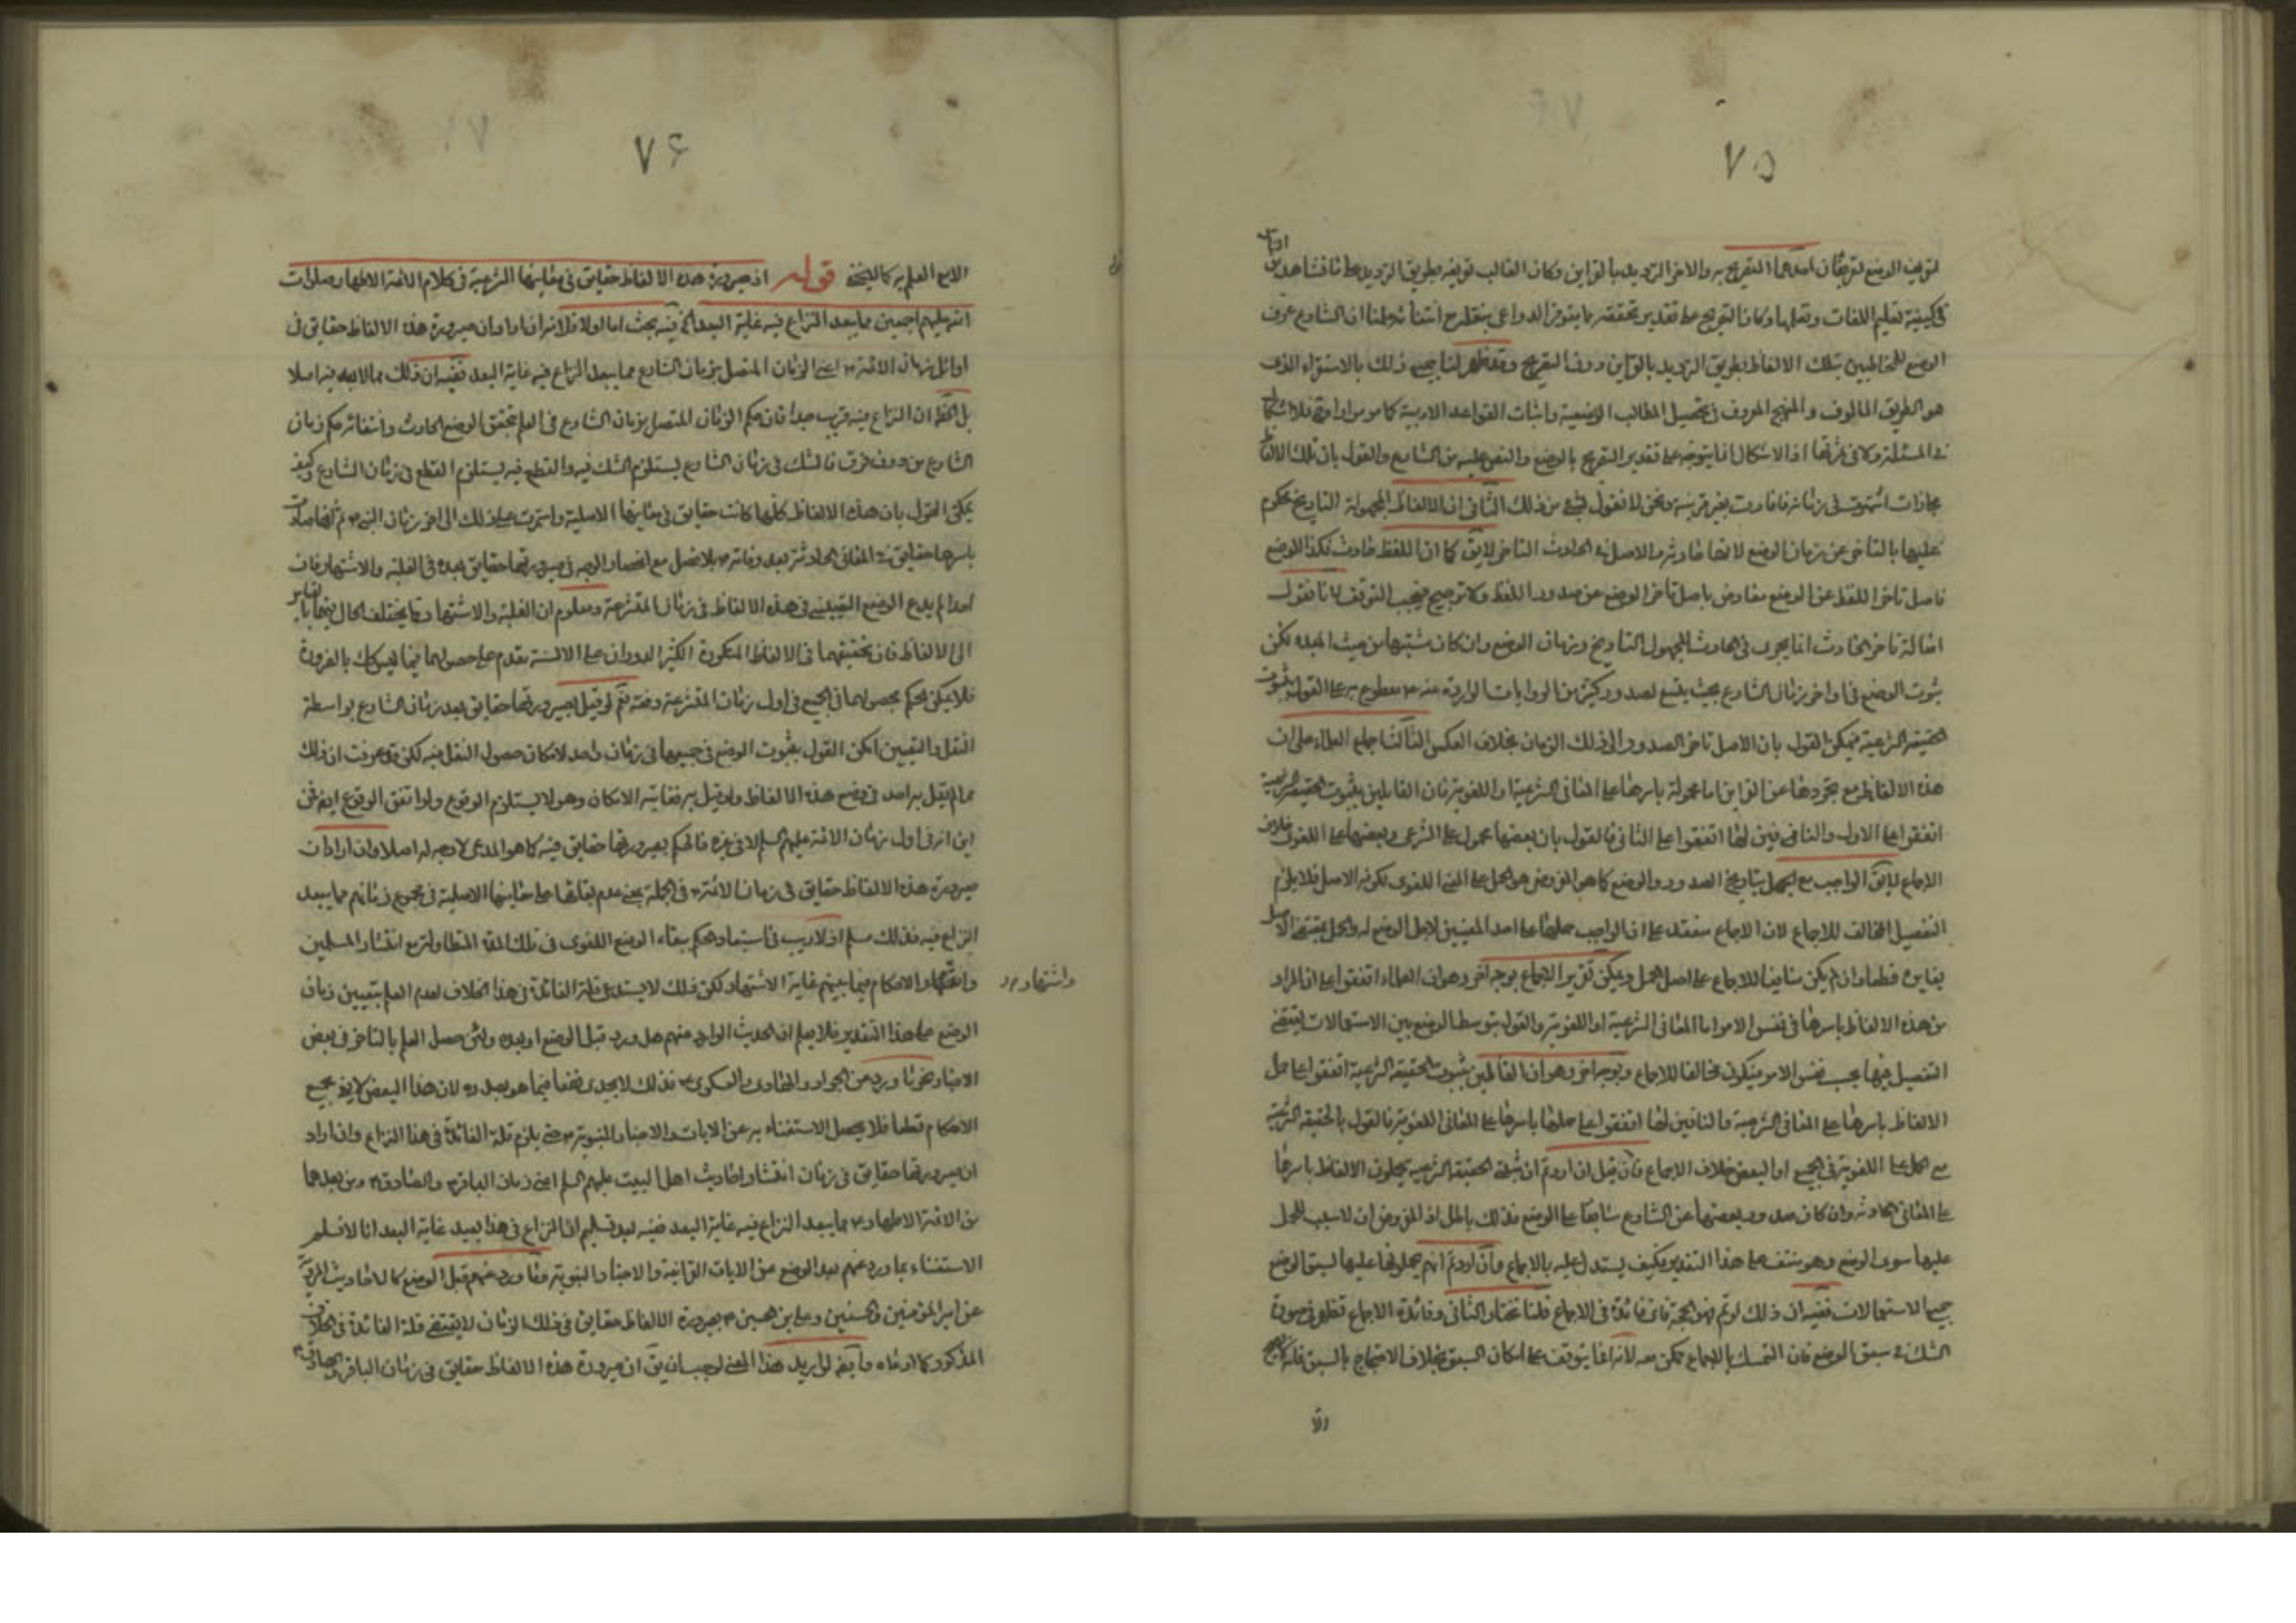 ٧٥
لتعريف الوضع طريقان احدهما التصريح به والاخر الترديد بالقراين وكان الغالب تعريفه بطريق الترديد على ما نشاهد من اهل
في كيفية تعليم اللغات وتعلمها وكان التصريح على تقدير تحققه مما يتوفر الدواعى بنقله علمنا ان الشارع عرف
الوضع للمخاطبين بتلك الالفاظ بطريق الترديد بالقراين دون التصريح وقد ظهر لنا جميع ذلك بالاستقراء الذى
هو الطريق المالوف والمنهج المعروف في تحصيل المطالب الوضعية واثبات القواعد الادبية كما مر مرارا وح فلا اشكال
في المسئلة ولا في ثمرتها اذ الاشكال انما يتوجه على تقدير التصريح بالوضع والنص عليه من الشارع والقول بان تلك الالفاظ
مجازات اشتهرت في زمانه فافادت بغير قرينة ونحن لا نقول بشئ من ذلك الثانى ان الالفاظ المجهولة التاريخ محكوم
عليها بالتاخر عن زمان الوضع لانها حادثة والاصل في الحادث التاخر لا يق كما ان اللفظ حادث فكذا الوضع
فاصل تاخر اللفظ عن الوضع معارض باصل تاخر الوضع عن صدور اللفظ ولا ترجيح فيجب التوقف لانا نقول
اصالة تاخر الحادث انما يجرى في الحادث المجهول التاريخ وزمان الوضع وان كان مشتبها من حيث المبدء لكن
ثبوت الوضع في اواخر زمان الشارع بحيث يتسع لصدور كثير من الروايات الواردة عنه ص مقطوع به على القول بثبوت
الحقيقة الشرعية فيمكن القول بان الاصل تاخر الصدور الى ذلك الزمان بخلاف العكس الثالث اجماع العلماء على ان
هذه الالفاظ مع تجردها عن القراين اما محمولة باسرها على المعانى الشرعية او اللغوية فان القايلين بثبوت الحقيقة الشرعية
اتفقوا على الاول والنافين لها اتفقوا على الثانى فالقول بان بعضها محمول على الشرعى وبعضها على اللغوى خلاف
الاجماع لا يق الواجب مع الجهل بتاريخ الصدور والوضع كما هو المفروض هو الحمل على المعنى اللغوى لكونه الاصل فلا يلزم
التفصيل المخالف للاجماع لان الاجماع منعقد على ان الواجب حملها على احد المعنيين لاجل الوضع له والحمل بمقتضى الاصل
يغايره قطعا وان لم يكن منافيا للاجماع على اصل الحمل ويمكن تقرير الاجماع بوجه اخر وهو ان العلماء اتفقوا على ان المراد
من هذه الالفاظ باسرها في نفس الامر اما المعانى الشرعية او اللغوية والقول بتوسط الوضع بين الاستعمالات يقتضى
التفصيل فيها بحسب نفس الامر فيكون مخالفا للاجماع وبوجه اخر وهو ان القائلين بثبوت الحقيقة الشرعية اتفقوا على حمل
الالفاظ باسرها على المعانى الشرعية والنافين لها اتفقوا على حملها باسرها على المعانى اللغوية فالقول بالحقيقة الشرعية
مع الحمل على اللغوية في الجميع او البعض خلاف الاجماع فان قيل ان اردتم ان مثبتى الحقيقة الشرعية يحملون الالفاظ باسرها
على المعانى الحادثة وان كان صدور بعضها عن الشارع سابقا على الوضع فذلك باطل اذ المفروض ان لا سبب للحمل
عليها سوى الوضع وهو منتف على هذا التقدير فكيف يستدل عليه بالاجماع وان اردتم انهم يحملونها عليها لسبق الوضع
جميع الاستعمالات ففيه ان ذلك لو تم فهو الحجة فاى فائدة في الاجماع قلنا نختار الثانى وفائدة الاجماع تظهر في صورة
الشك في سبق الوضع فان التمسك بالاجماع ممكن معه لانه انما يتوقف على امكان السبق بخلاف الاحتجاج بالسبق فانه
٧۶
الا مع العلم به كما لا يخفى قوله اذ صيرورة هذه الالفاظ حقايق في معانيها الشرعية في كلام الائمة الاطهار صلوات
الله عليهم اجمعين مما يبعد النزاع فيه غاية البعد الخ فيه بحث اما اولا فلانه ان اراد ان صيرورة هذه الالفاظ حقايق في
اوائل زمان الائمة ع اعنى الزمان المتصل بزمان الشارع مما يبعد النزاع فيه غاية البعد ففيه ان ذلك مما لا بعد فيه اصلا
بل الحق ان النزاع فيه قريب جدا فان حكم الزمان المتصل بزمان الشارع في العلم بتحقق الوضع الحادث وانتفائه حكم زمان
الشارع من دون فرق فالشك في زمان الشارع يستلزم الشك فيه والقطع فيه يستلزم القطع في زمان الشارع وكيف
يمكن القول بان هذه الالفاظ كلها كانت حقايق في معانيها الاصلية واستمرت على ذلك الى اخر زمان النبى ص ثم انها صارت
باسرها حقايق في المعانى الحادثة بعد وفاته ص بلا فصل مع انحصار الوجه في صيرورتها حقايق بعده في الغلبة والاشتهار فان
احدا لم يدع الوضع التعيينى في هذه الالفاظ في زمان المتشرعة ومعلوم ان الغلبة والاشتهار مما يختلف الحال فيهما بالقياس
الى الالفاظ فان تحققهما في الالفاظ المتكررة الكثير الدوران على الالسنة مقدم على حصولهما فيما ليس كذلك بالضرورة
فلا يمكن الحكم بحصولهما في الجميع في اول زمان المتشرعة دفعة نعم لو قيل بصيرورتها حقايق بعد زمان الشارع بواسطة
النقل والتعيين امكن القول بثبوت الوضع في جميعها في زمان واحد لامكان حصول النقل فيه لكن قد عرفت ان ذلك
مما لم يقل به احد في وضع هذه الالفاظ ولو قيل به فغايته الامكان وهو لا يستلزم الوقوع ولو اتفق الوقوع ايضا فمن
اين انه في اول زمان الائمة عليهم السلم لا في غيره فالحكم بصيرورتها حقايق فيه كما هو المدعى لا وجه له اصلا وان اراد ان
صيرورة هذه الالفاظ حقايق في زمان الائمة ع في الجملة بمعنى عدم بقائها على معانيها الاصلية في مجموع زمانهم مما يبعد
النزاع فيه فذلك مسلم اذ لا ريب في استبعاد الحكم ببقاء الوضع اللغوى في تلك المدة المتطاولة مع انتشار المسلمين
واشتهار الاحكام فيما بينهم غاية الاشتهار لكن ذلك لا يستدعى قلة الفائدة في هذا الخلاف لعدم العلم بتعيين زمان
واشتهار
الوضع على هذا التقدير فلا يعلم ان الحديث الوارد منهم هل ورد قبل الوضع او بعده ولئن حصل العلم بالتاخر في بعض
الاخبار نحو ما ورد من الجواد والهادى والعسكرى ع فذلك لا يجدى نفعا فيما هو بصدده لان هذا البعض لا يفى بجميع
الاحكام قطعا فلا يحصل الاستغناء به عن الايات والاخبار النبوية ص حتى يلزم قلة الفائدة في هذا النزاع وان اراد
ان صيرورتها حقايق في زمان انتشار احاديث اهل البيت عليهم السلم اعنى زمان الباقر ع والصادق ع ومن بعدهما
من الائمة الاطهار ع مما يبعد النزاع فيه غاية البعد ففيه بعد تسليم ان النزاع في هذا بعيد غاية البعد انا لا نسلم
الاستغناء بما ورد عنهم بعد الوضع عن الايات القرانية والاخبار النبوية وما ورد عنهم قبل الوضع كالاحاديث المروية
عن امير المؤمنين والحسنين وعلى بن الحسين ع بصيرورة الالفاظ حقايق في ذلك الزمان لا يقتضى قلة الفائدة في الخلاف
المذكور كما ادعاه وايضا لو اريد هذا المعنى لوجب ان يق ان صيرورة هذه الالفاظ حقايق في زمان الباقر والصادق ع